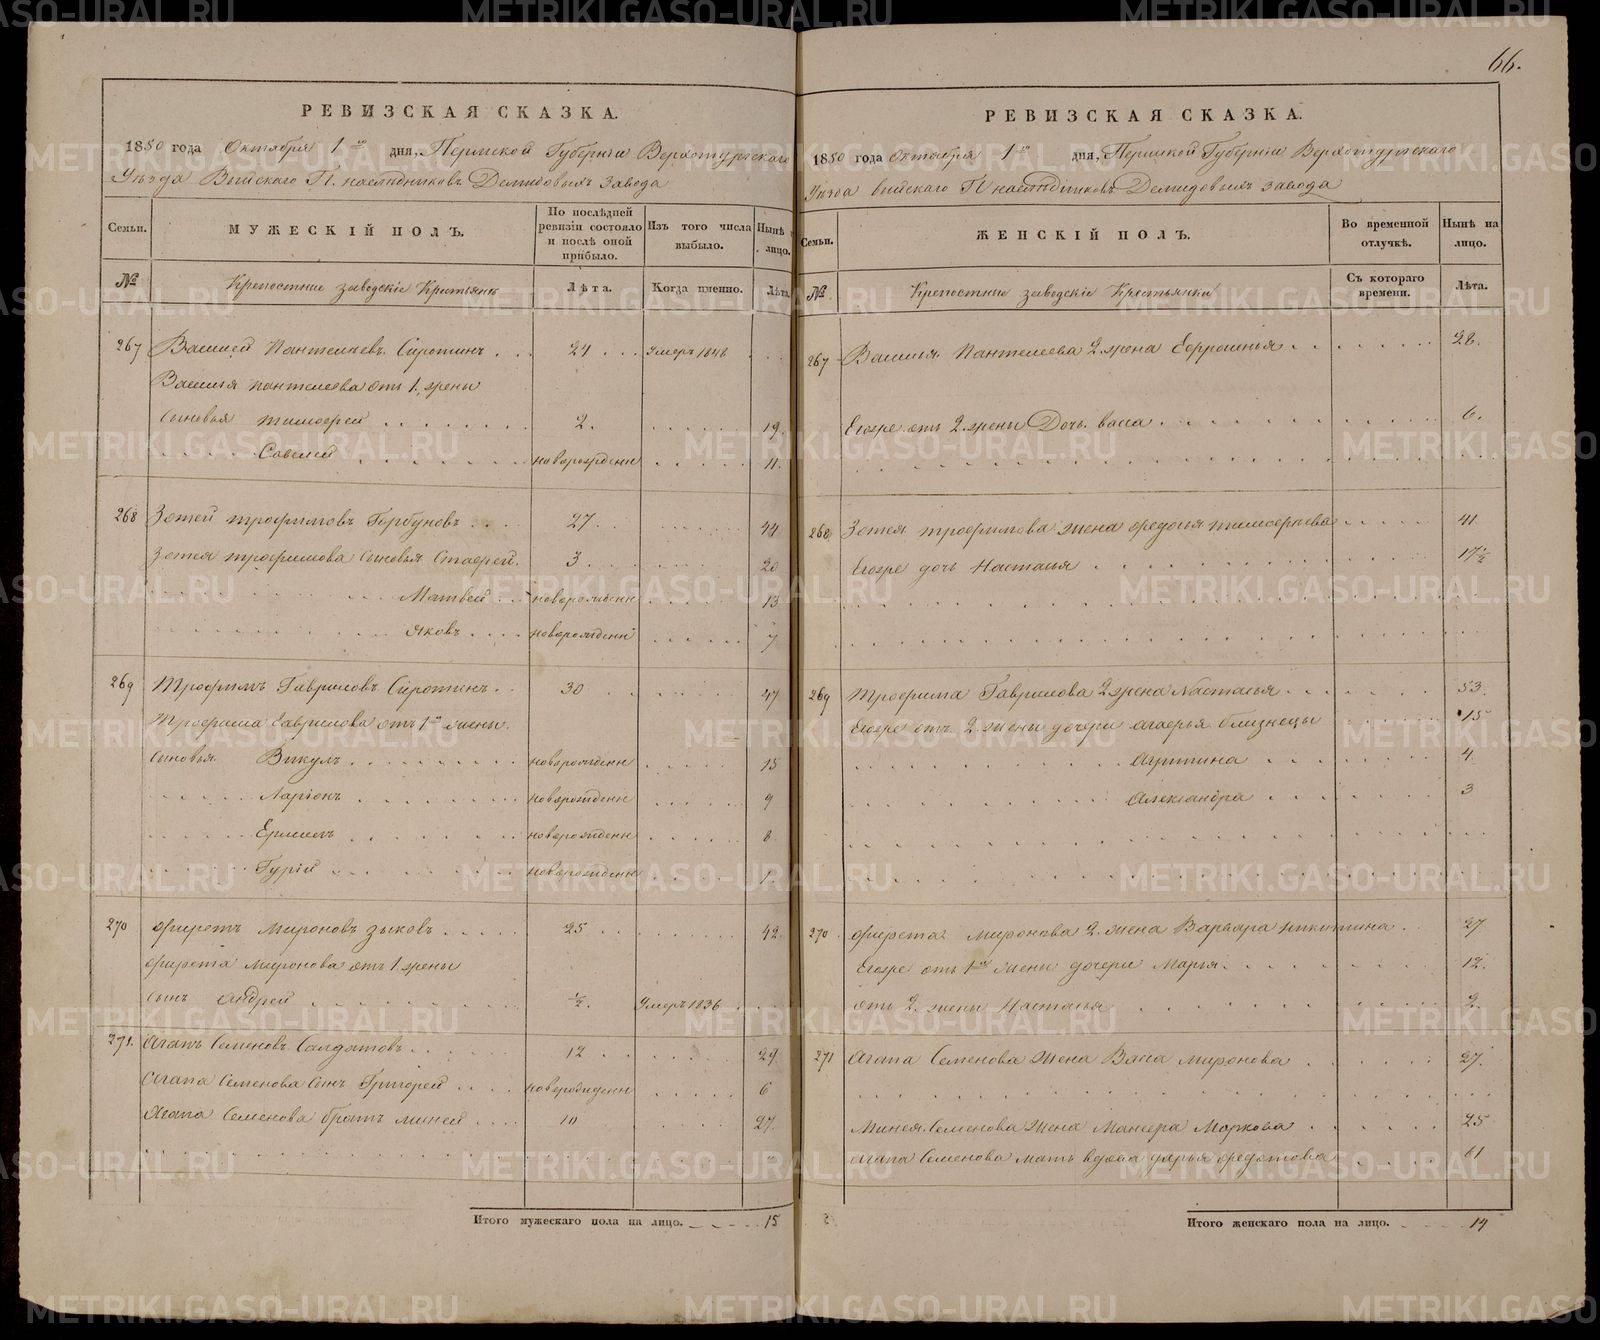 66.
РЕВИЗСКАЯ СКАЗКА.
1850 года Октября 1го дня, Пермской Губерніи Верхотурскаго
Уѣзда Выйскаго Г. наслѣдниковъ Демидовыхъ завода
Семьи.
МУЖЕСКІЙ ПОЛЪ.
По послѣдней ревизіи состояло и послѣ оной прибыло.
Изъ того числа выбыло.
Нынѣ на лицо.
№
Крепостные заводскіе Крестьяне
Лѣта.
Когда именно.
Лѣта.
267 Василей Пантелеевъ Сиротинъ 24 Умеръ 1848
Василья пантелеева отъ 1. жены
сыновья тимофей 2. 19.
Савелей новорожденн 11.
268 Зотей трофимовъ Горбуновъ 27 44
Зотея трофимова сыновья Стафей. 3 20
Матвей новорожденн 13
Яковъ новорожденн 7
269 Трофимъ Гавриловъ Сиротинъ 30 47
Трофима Гаврилова отъ 1ой жены.
сыновья Викулъ новорожденн 15
Ларіонъ новорожденн 9
Ермилъ новорожденн 8
Гурій новорожденн 1
270 Фирсъ Мироновъ Зыковъ 25 42.
Мироновa отъ 1. жены
сынъ Андрей ½. Умеръ 1836
271. Агапъ Семеновъ Солдатовъ 12 29
Агапа Семенова сынъ Григорей новорожденн 6
Агапа Семенова братъ миней 10 27.
Итого мужескаго пола на лицо. 15
РЕВИЗСКАЯ СКАЗКА.
1850 года Октября 1го дня, Пермской Губерніи Верхотурскаго
Уѣзда выйскаго Г наслѣдниковъ Демидовыхъ завода
Семьи.
ЖЕНСКІЙ ПОЛЪ.
Во временной отлучкѣ.
Нынѣ на лицо.
№
Крепостные заводскіе Крестьянки
Съ котораго времени.
Лѣта.
267 Василья Пантелеева 2. жена Ефросинья 28.
Егоже отъ 2. жены Дочь васса 6.
268 Зотея трофимова жена федосья тимофеева 41
Егоже дочь Настасья 17½
269 Трофима Гаврилова 2 жена Настасья 53.
Егоже отъ 2. жены дочери агафья близнецы 15
Агрипина 4
Александра 3
270 Миронова 2. жена Варвара никитина 27
Егоже отъ 1ой жены дочери Марья 12.
отъ 2. жены Настасья 2.
271 Агапа Семенова жена Васса миронова 27.
Минея Семенова жена Манефа Маркова 25
Агапа Семенова мать вдова дарья федотова 61
Итого женскаго пола на лицо. 14
METRIKI.GASO-URAL.RU